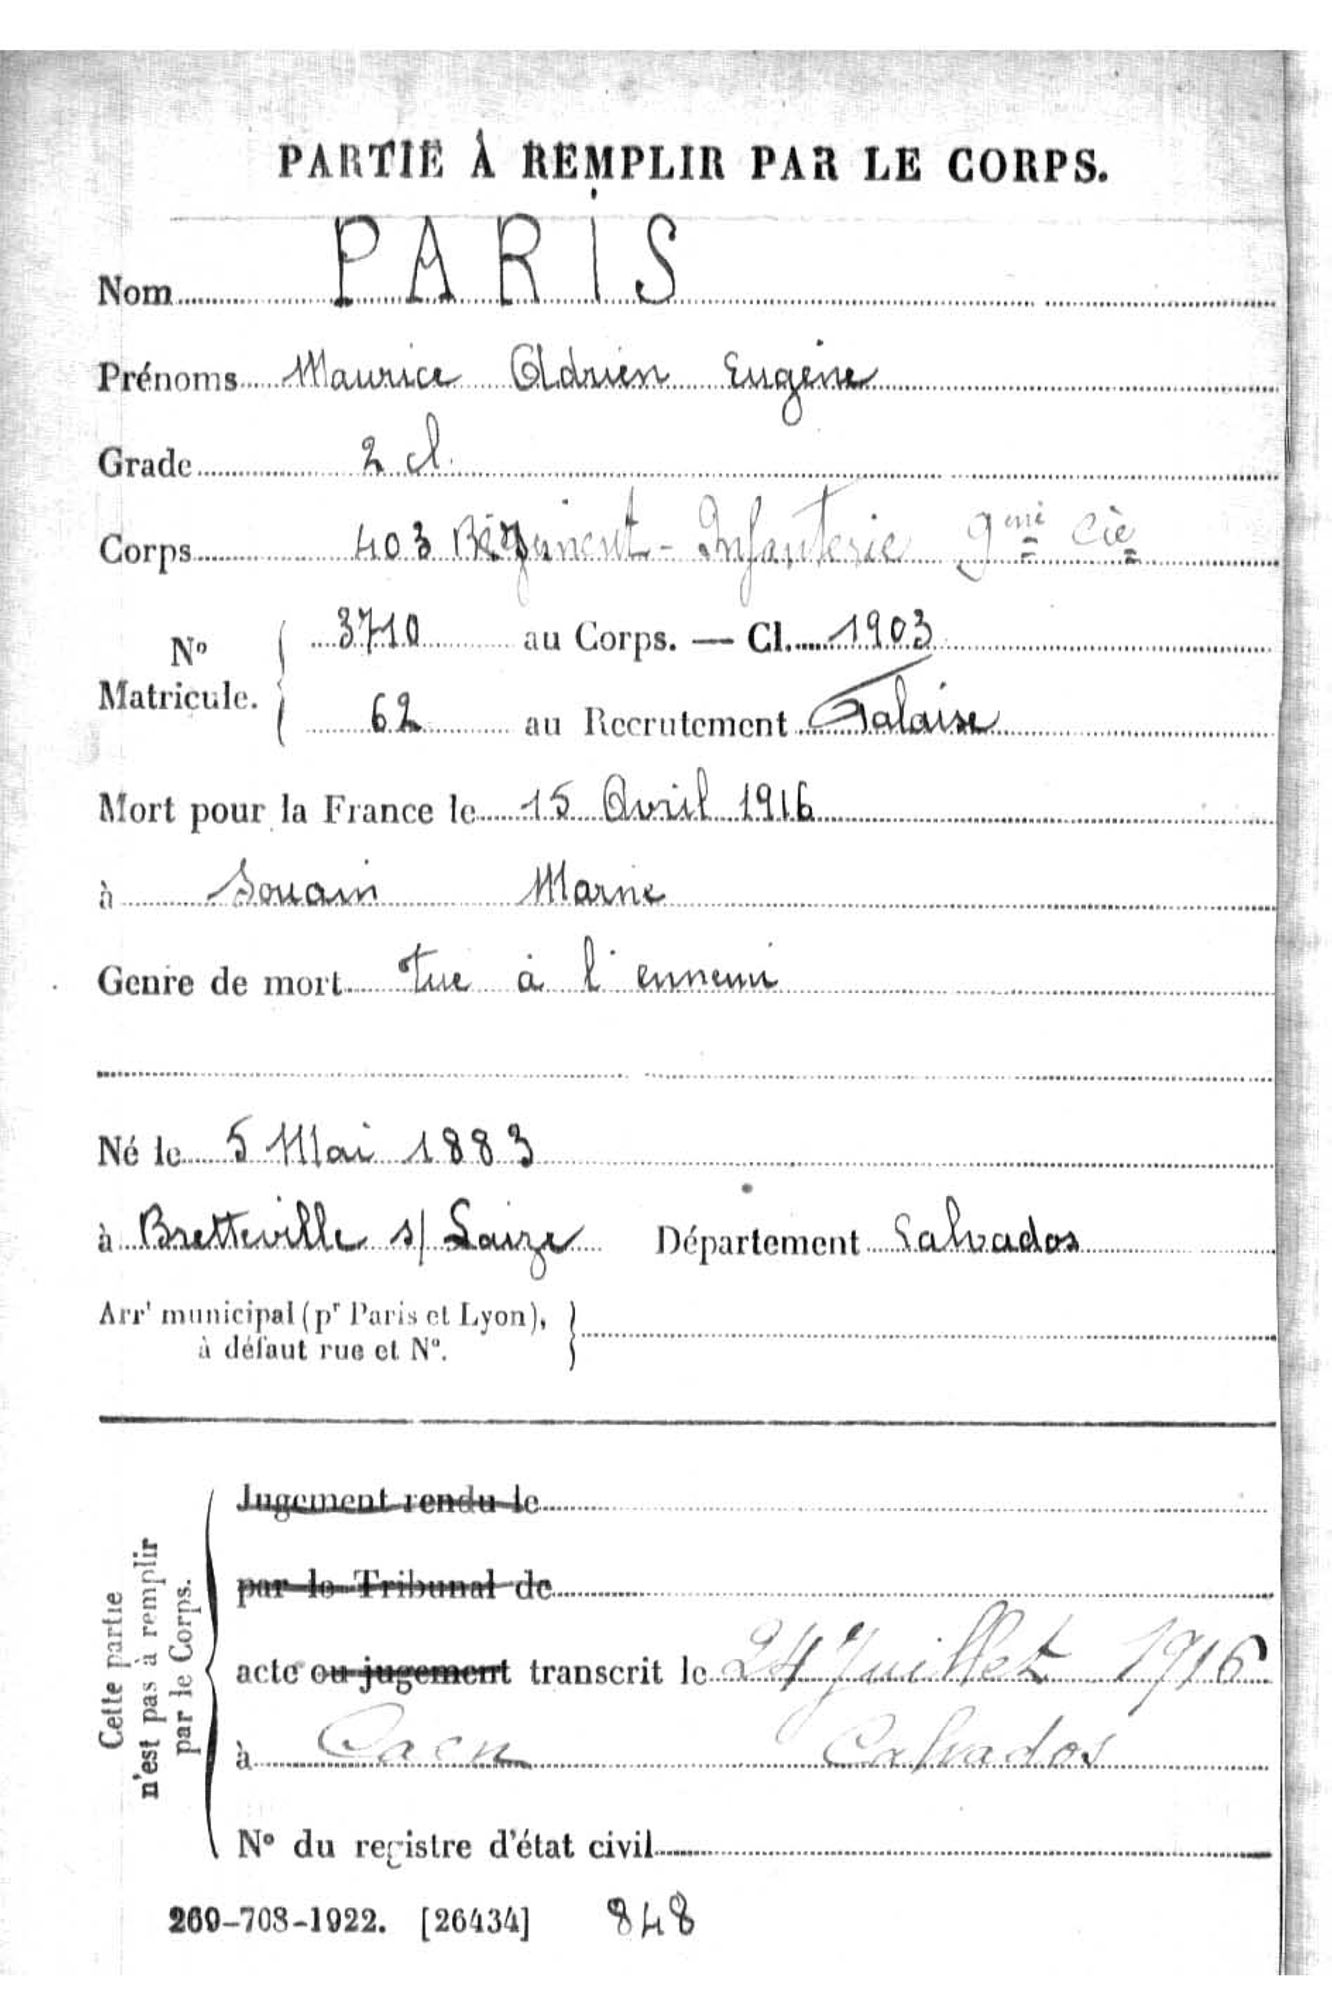 PARTIE À REMPLIR PAR LE CORPS.
Nom PARIS
Prénoms Maurice Adrien Eugène
Grade 2 cl.
Corps 403 Régiment - Infanterie 9eme Cie
No Matricule. 3710 au Corps. — Cl. 1903
62 au Recrutement Falaise
Mort pour la France le 15 Avril 1916
à Souain Marne
Genre de mort Tué à l'ennemi
Né le 5 Mai 1883
à Bretteville s/ Laize Département Calvados
Arrt municipal (pr Paris et Lyon),
à défaut rue et No.
Cette partie
n'est pas à remplir
par le Corps.
Jugement rendu le
par le Tribunal de
acte ou jugement transcrit le 24 Juillet 1916
à Caen Calvados
No du registre d'état civil
269-708-1922. [26434] 848